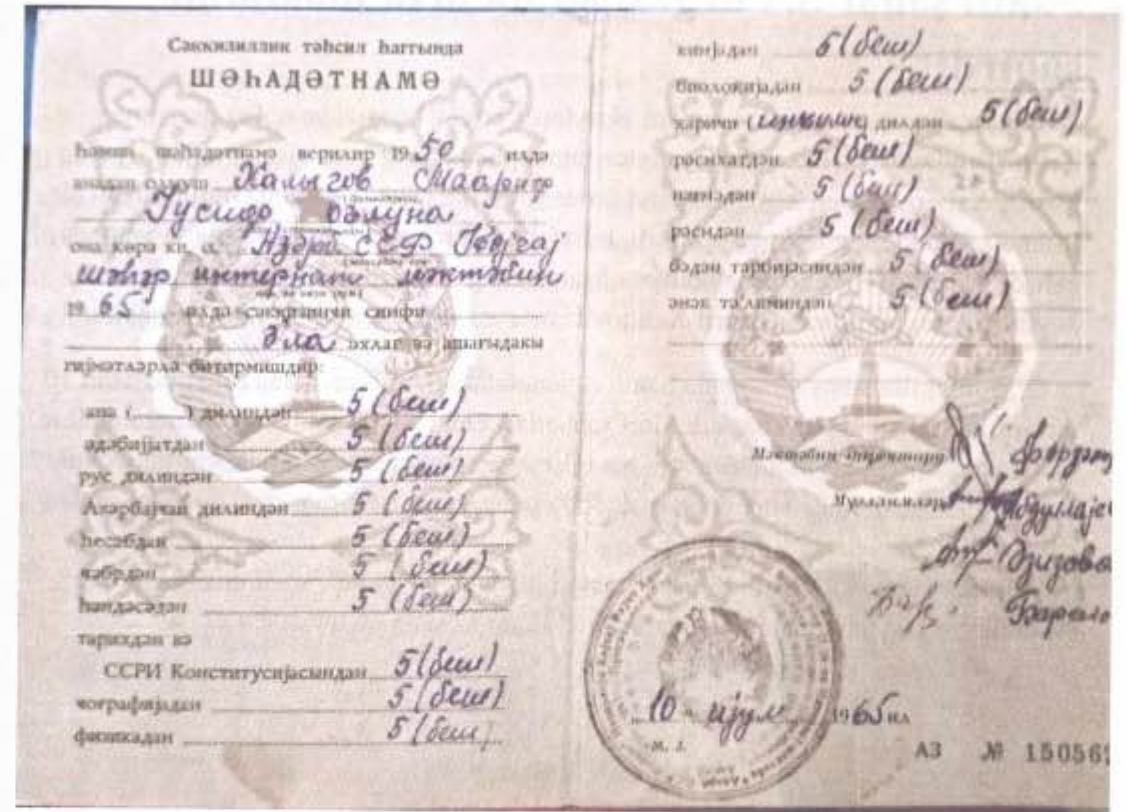 Сәккизиллик тәһсил һаггында
ШӘҺАДӘТНАМӘ
һәмин шәһадәтнамә верилир 1950 илдә
анадан олмуш Халыгов Маариф
Јусиф оғлуна
она көрә ки, о, Азәрб ССР Ҝөјчај
шәһәр интернат мәктәбин
1965 илдә сәккизинчи синфи
Әла әхлаг вә ашағыдакы
гијмәтләрлә битирмишдир:
ана (......) дилиндән 5 (беш)
әдәбијјатдан 5 (беш)
рус дилиндән 5 (беш)
Азәрбајҹан дилиндән 5 (беш)
һесабдан 5 (беш)
ҹәбрдән 5 (беш)
һәндәсәдән 5 (беш)
тарихдән вә
ССРИ Конститусијасындан 5 (беш)
ҹоғрафијадан 5 (беш)
физикадан 5 (беш)
кимјадан 5 (беш)
биолоҝијадан 5 (беш)
харичи (инҝилис) дилдән 5 (беш)
рәсмхәтдән 5 (беш)
нәғмәдән 5 (беш)
рәсмдән 5 (беш)
бәдән тәрбијәсиндән 5 (беш)
әмәк тә'лиминдән 5 (беш)
Мәктәбин директору
Мүәллимләр Абдуллајев
Әзизова
10 ијул 1965 ил
М. Ј.
АЗ № 15056